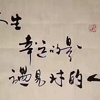 生
幸运的是
遇见对的人